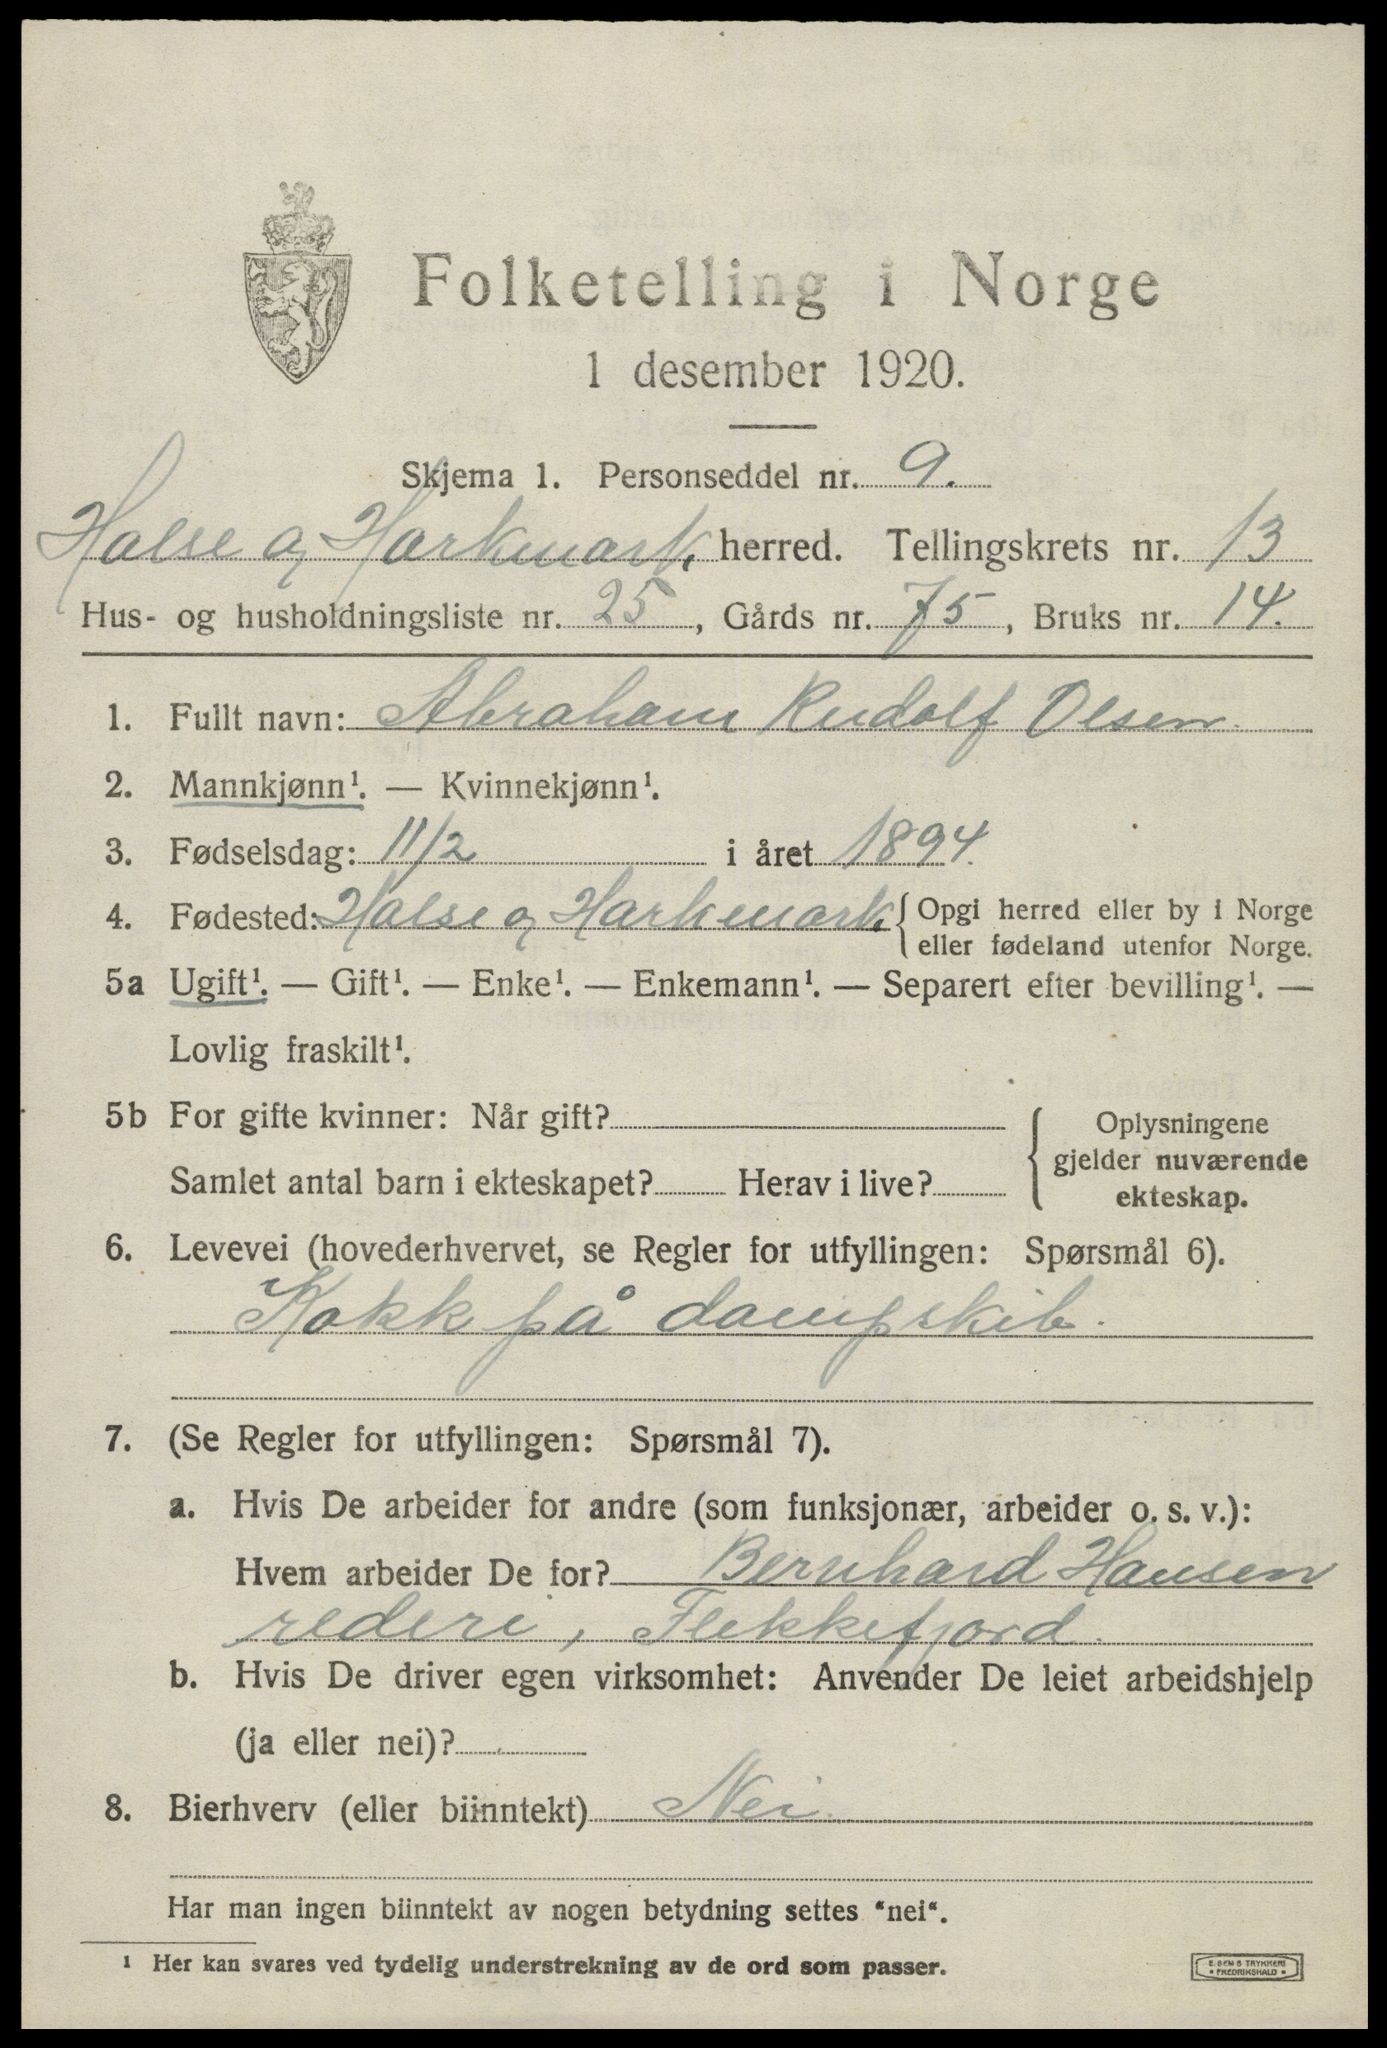 Folketelling i Norge
1 desember 1920.
Skjema 1. Personseddel nr. 9.
Halse og Harkmark herred. Tellingskrets nr. 13
Hus- og husholdningsliste nr. 25, Gårds nr. 75, Bruks nr. 14.
1. Fullt navn: Abraham Rudolf Olsen.
2. Mannkjønn¹. — Kvinnekjønn¹.
3. Fødselsdag: 11/2 i året 1894.
4. Fødested: Halse og Harkmark { Opgi herred eller by i Norge
eller fødeland utenfor Norge.
5a Ugift¹. — Gift¹. — Enke¹. — Enkemann¹. — Separert efter bevilling¹. —
Lovlig fraskilt¹.
5b For gifte kvinner: Når gift? { Oplysningene
gjelder nuværende
Samlet antal barn i ekteskapet? Herav i live? ekteskap.
6. Levevei (hovederhvervet, se Regler for utfyllingen: Spørsmål 6).
Kokk på dampskib.
7. (Se Regler for utfyllingen: Spørsmål 7).
a. Hvis De arbeider for andre (som funksjonær, arbeider o. s. v.):
Hvem arbeider De for? Bernhard Hansen
rederi, Flekkefjord.
b. Hvis De driver egen virksomhet: Anvender De leiet arbeidshjelp
(ja eller nei)?
8. Bierhverv (eller biinntekt) Nei.
Har man ingen biinntekt av nogen betydning settes "nei".
¹ Her kan svares ved tydelig understrekning av de ord som passer.
E. SEM'S TRYKKERI
• FREDRIKSHALD •